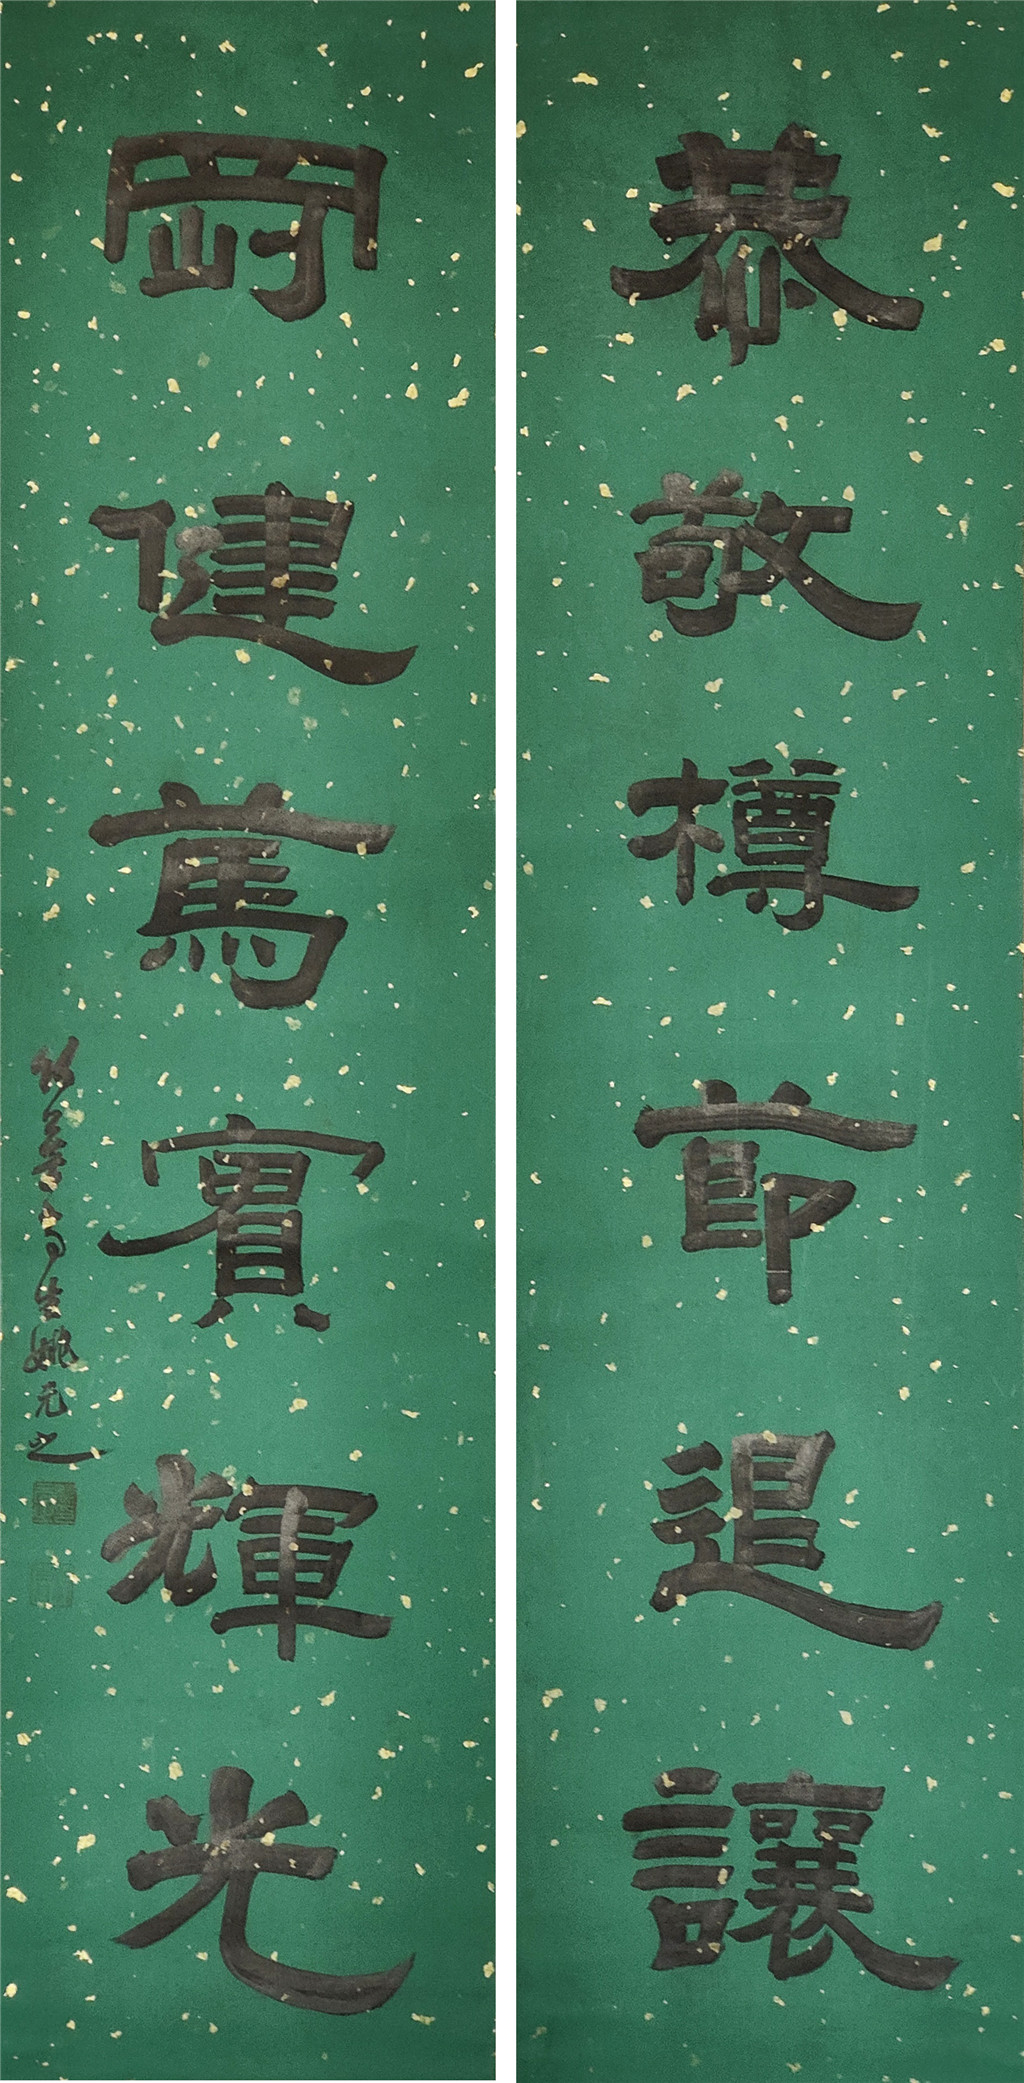 恭敬樽節退讓
剛健篤實輝光
姚元之